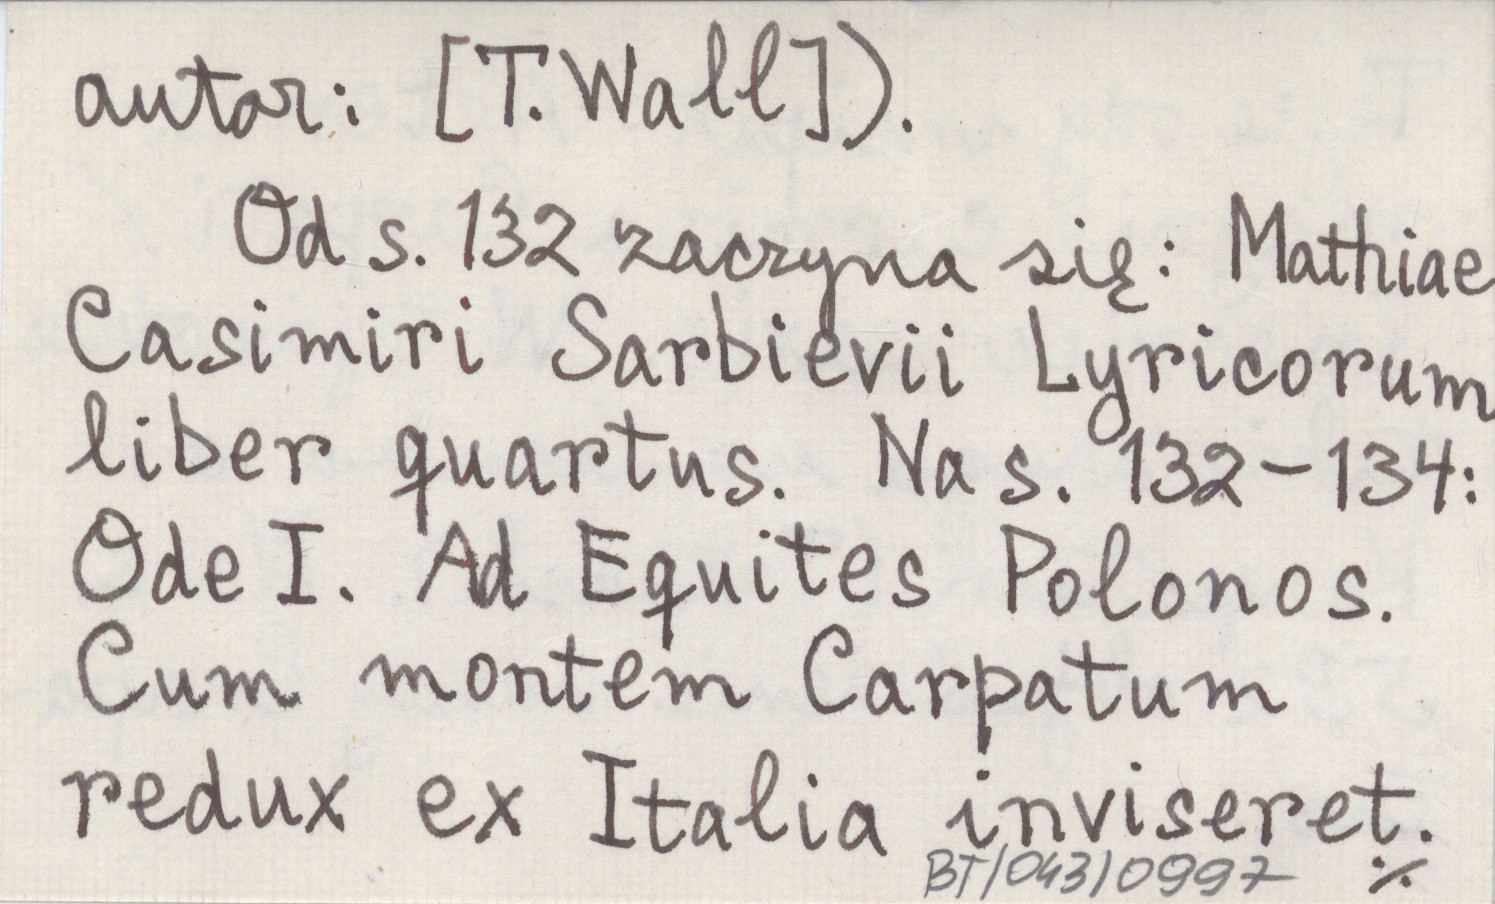 autor: [T. Wall]).
Od s. 132 zaczyna się: Mathiae
Casimiri Sarbievii Lyricorum
liber quartus. Na s. 132-134:
Ode I. Ad Equites Polonos.
Cum montem Carpatum
redux ex Italia inviseret.
BT/043/0997 ./.